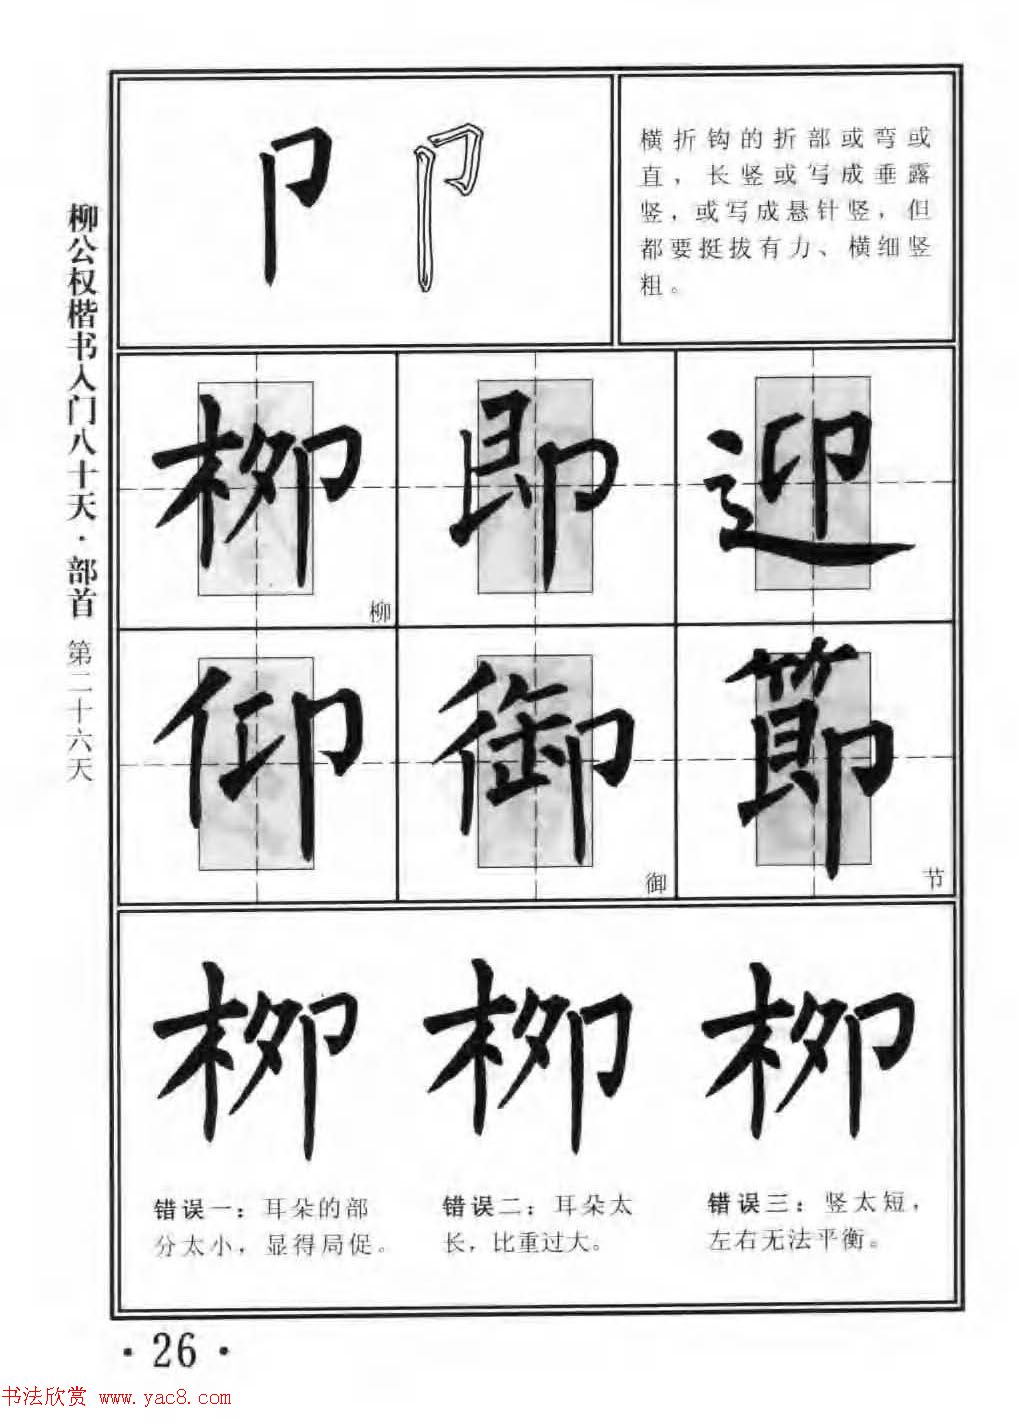 柳公权楷书入门八十天·部首 第二十六天
卩 卩
横折钩的折部或弯或
直，长竖或写成垂露
竖，或写成悬针竖，但
都要挺拔有力、横细竖
粗。
柳 即 迎
柳
仰 御 節
御 节
柳 柳 柳
错误一：耳朵的部
分太小，显得局促。
错误二：耳朵太
长，比重过大。
错误三：竖太短，
左右无法平衡。
·26·
书法欣赏 www.yac8.com